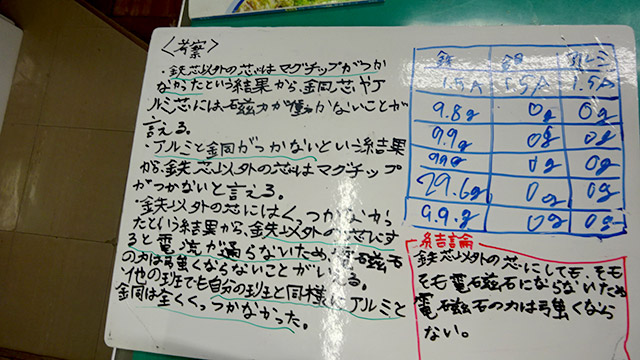 〈考察〉
・鉄芯以外の芯はマグチップがつか
なかったという結果から、銅芯やア
ルミ芯には、磁力が働かないことが
言える。
・アルミと銅がつかないという結果
から、鉄芯以外の芯はマグチップ
がつかないと言える。
・鉄以外の芯にはくっつかなかっ
たという結果から、鉄以外の芯にす
ると電流が通らないため、電磁石
の力は強くならないことがいえる。
・他の班でも自分の班と同様にアルミと
銅は全くくっつかなかった。
鉄 銅 アルミ
1.5A 1.5A 1.5A
9.8g 0g 0g
9.9g 0g 0g
9.9g 0g 0g
29.6g 0g 0g
9.9g 0g 0g
結論
鉄芯以外の芯にしても、そも
そも電磁石にならないため
電磁石の力は強くなら
ない。